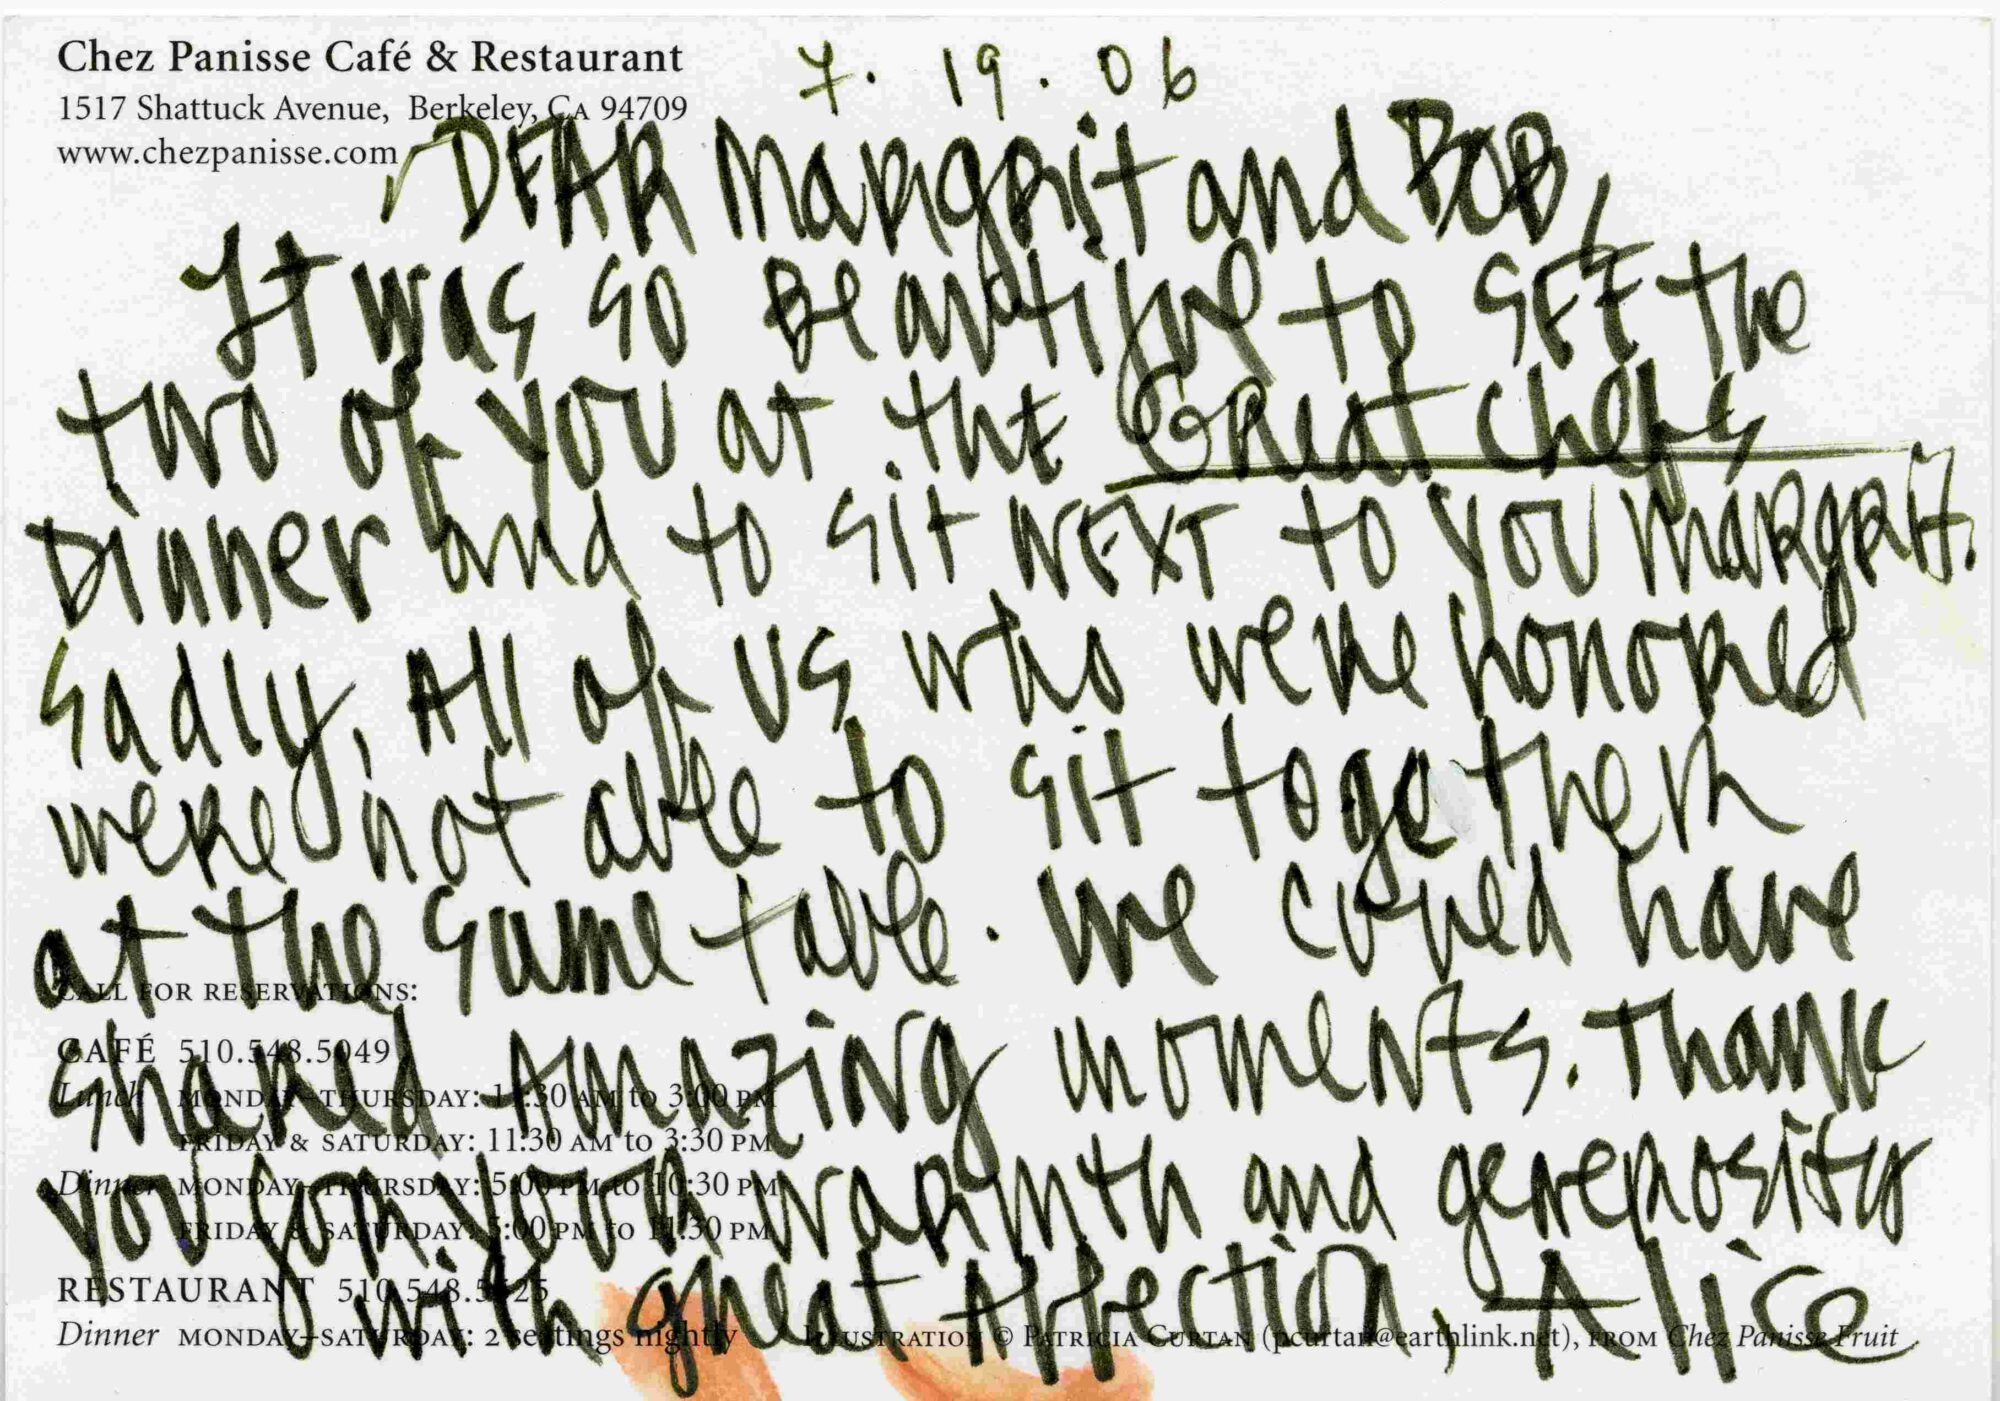 Chez Panisse Café & Restaurant
1517 Shattuck Avenue, Berkeley, CA 94709
www.chezpanisse.com
7. 19. 06
DEAR Margrit and BOB,
It was so Beautiful to SEE the
two of you at the Great Chefs
Dinner and to sit NEXT to you Margrit.
Sadly, All of us who were honored
were not able to sit together
at the same table. We could have
shared Amazing moments. Thank
you for your warmth and generosity
with great Affection, Alice
CALL FOR RESERVATIONS:
CAFÉ 510.548.5049
Lunch MONDAY–THURSDAY: 11:30 AM to 3:00 PM
FRIDAY & SATURDAY: 11:30 AM to 3:30 PM
Dinner MONDAY–THURSDAY: 5:00 PM to 10:30 PM
FRIDAY & SATURDAY: 5:00 PM to 11:30 PM
RESTAURANT 510.548.5525
Dinner MONDAY–SATURDAY: 2 seatings nightly
ILLUSTRATION © PATRICIA CURTAN (pcurtan@earthlink.net), FROM Chez Panisse Fruit